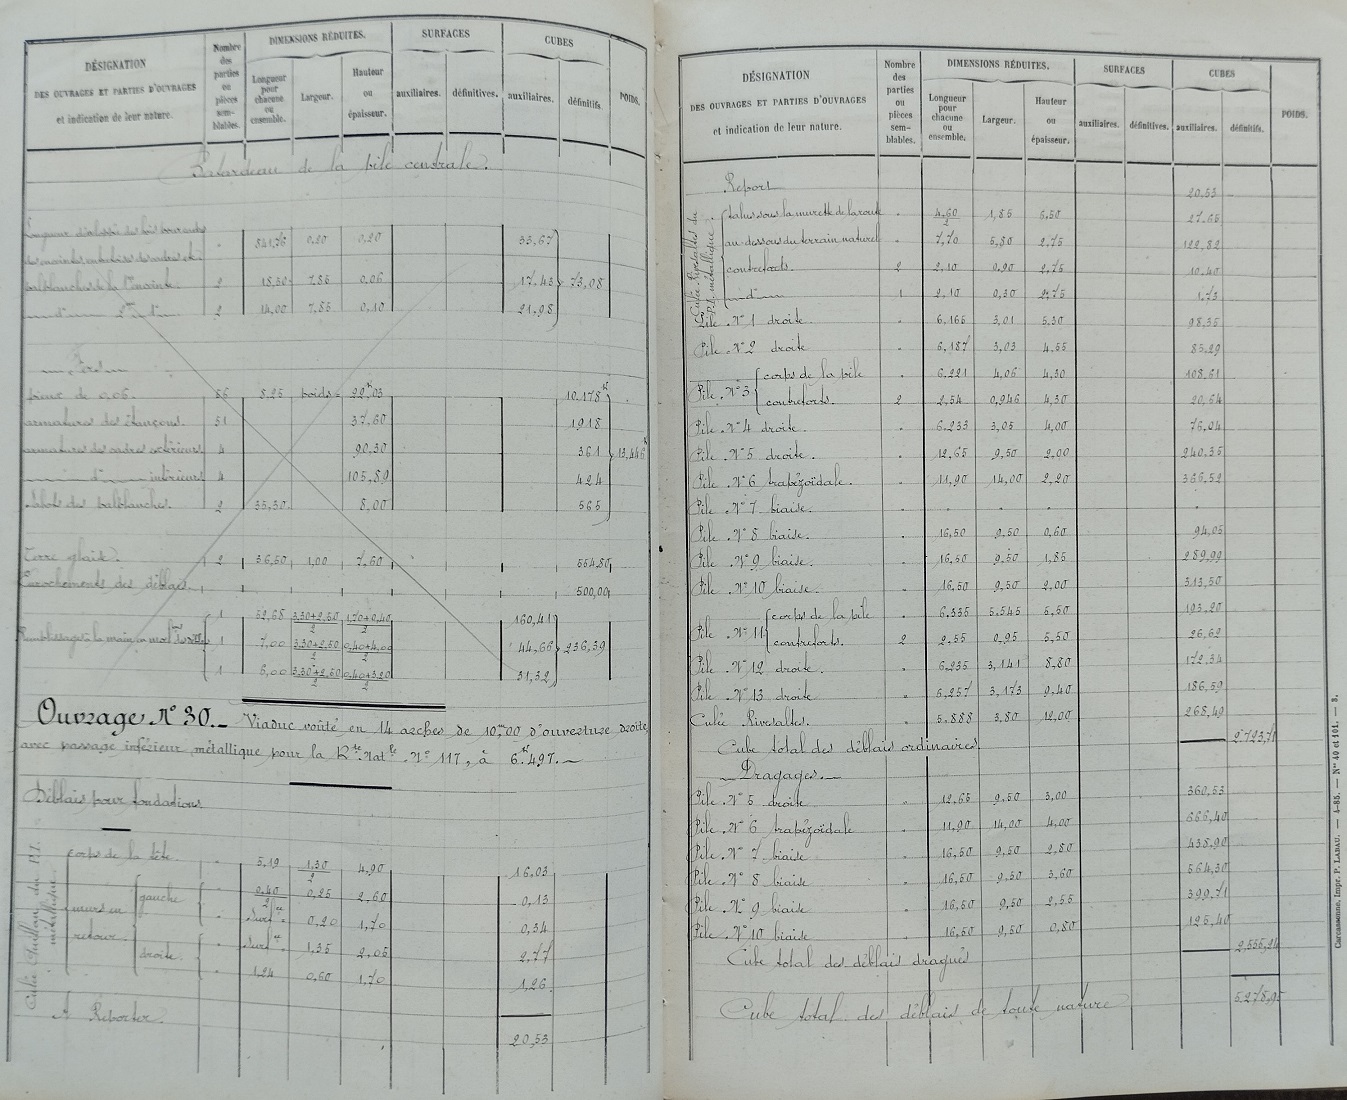 DÉSIGNATION
DES OUVRAGES ET PARTIES D'OUVRAGES
et indication de leur nature.
Nombre des parties ou pièces sem-blables.
DIMENSIONS RÉDUITES.
Longueur pour chacune ou ensemble.
Largeur.
Hauteur ou épaisseur.
SURFACES
auxiliaires.
définitives.
CUBES
auxiliaires.
définitifs.
POIDS.
Batardeau de la pile centrale.
341,76 0,20 0,20 33,67
palblanches de la 1re moitié. 2 18,50 7,85 0,06 17,43 73,08
d° 2e d° 2 14,00 7,85 0,10 21,98
pieux de 0,06. 56 8,25 poids = 22k,03 10.178k
armatures des étançons. 51 37,60 1918
armatures des cadres extérieurs 4 90,30 361 13.446k
d° intérieurs 4 105,89 424
Sabots des palblanches. 2 35,30 8,00 565
Terre glaise. 2 36,50 1,00 7,60 554,80
Enrochements des déblais. 500,00
1 52,68 3,30+2,50/2 1,70+0,40/2 160,41
Remblissage à la main en 1 7,00 3,30+2,50/2 0,40+4,00/2 44,66 236,39
1 6,00 3,30+2,50/2 0,40+3,20/2 31,32
Ouvrage N° 30._ Viaduc voûté en 14 arches de 10m,00 d'ouverture droite,
avec passage inférieur métallique pour la Rte Natle N° 117, à 6k.497._
Déblais pour fondations
Culée Quillan du P.I. métallique
corps de la tête. 5,19 1,30/2 4,90 16,03
murs en retour.
gauche 0,40/2 0,25 2,60 0,13
Surfce = 0,20 1,70 0,34
droite. Surfce = 1,35 2,05 2,77
1,24 0,60 1,70 1,26
À Reporter. 20,53
DÉSIGNATION
DES OUVRAGES ET PARTIES D'OUVRAGES
et indication de leur nature.
Nombre des parties ou pièces sem-blables.
DIMENSIONS RÉDUITES.
Longueur pour chacune ou ensemble.
Largeur.
Hauteur ou épaisseur.
SURFACES
auxiliaires.
définitives.
CUBES
auxiliaires.
définitifs.
POIDS.
Report 20,53
Culée Rivesaltes du P.I. métallique
talus sous la murette de la route 4,60/2 1,85 6,50 27,65
au-dessous du terrain naturel 7,70 5,80 2,75 122,82
contreforts. 2 2,10 0,90 2,75 10,40
d° 1 2,10 0,30 2,75 1,73
Pile N° 1 droite. 6,165 3,01 5,30 98,35
Pile N° 2 droite 6,187 3,03 4,55 85,29
Pile N° 3 corps de la pile 6,221 4,06 4,30 108,61
contreforts. 2 2,54 0,946 4,30 20,64
Pile N° 4 droite. 6,233 3,05 4,00 76,04
Pile N° 5 droite. 12,65 9,50 2,00 240,35
Pile N° 6 trapézoïdale. 11,90 14,00 2,20 366,52
Pile N° 7 biaise. " " " "
Pile N° 8 biaise. 16,50 9,50 0,60 94,05
Pile N° 9 biaise. 16,50 9,50 1,85 289,99
Pile N° 10 biaise. 16,50 9,50 2,00 313,50
Pile N° 11 corps de la pile 6,335 5,545 5,50 193,20
contreforts. 2 2,55 0,95 5,50 26,62
Pile N° 12 droite. 6,235 3,141 8,80 172,34
Pile N° 13 droite 6,257 3,173 9,40 186,59
Culée Rivesaltes. 5,888 3,80 12,00 268,49
Cube total des déblais ordinaires 2.723,71
_ Dragages._
Pile N° 5 droite 12,65 9,50 3,00 360,53
Pile N° 6 trapézoïdale 11,90 14,00 4,00 666,40
Pile N° 7 biaise 16,50 9,50 2,80 438,90
Pile N° 8 biaise 16,50 9,50 3,60 564,30
Pile N° 9 biaise 16,50 9,50 2,55 399,71
Pile N° 10 biaise 16,50 9,50 0,80 125,40
Cube total des déblais dragués 2.555,24
Cube total des déblais de toute nature 5.278,95
Carcassonne, Impr. P. LABAU. — 4-85. — Nos 40 et 101. — 3.